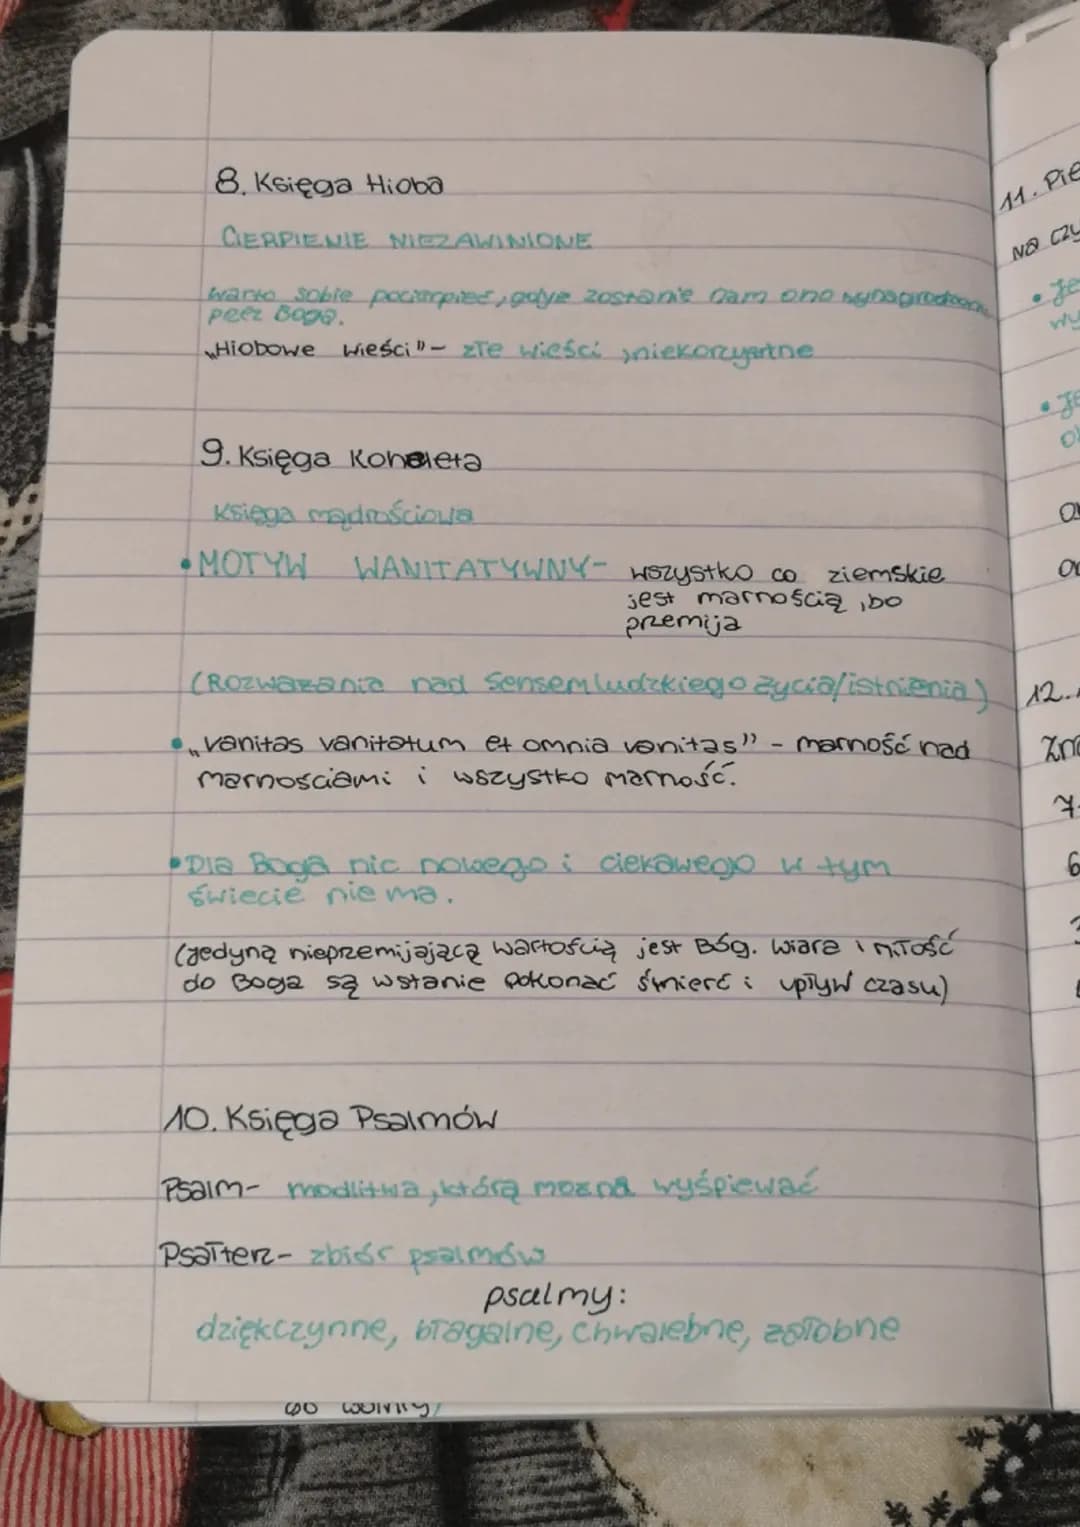 8. Księga Hioba
CIERPIENIE NIEZAWINIONE
warto sobie pocierpieć, gdyż zostanie nam ono
peez Boga.
„Hiobowe wieści" - złe wieści, niekorzystne
9. Księga Koheleta
Księga mądrościowa
• MOTYW WANITATYWNY - wszystko co ziemskie
jest marnością, bo
przemija
(Rozważania nad sensem ludzkiego życia/istnienia)
• „vanitas vanitatum et omnia vanitas" - marność nad
marnosciami i wszystko marność.
• Dla Boga nic nowego i ciekawego w tym
świecie nie ma.
(jedyną nieprzemijającą wartością jest Bóg. Wiara i miłość
do Boga są wstanie pokonać śmierć i upływ czasu)
10. Księga Psalmów
Psalm - modlitwa, którą można wyśpiewać
Psałterz - zbiór psalmów
psalmy:
dziękczynne, błagalne, chwalebne, żałobne
11. Pie
na czy
12.